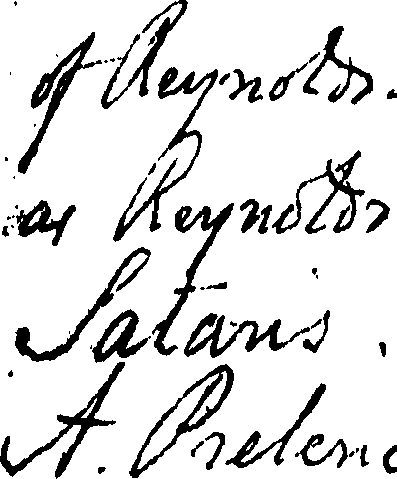 of Reynolds.
as Reynolds
Satans.
A.